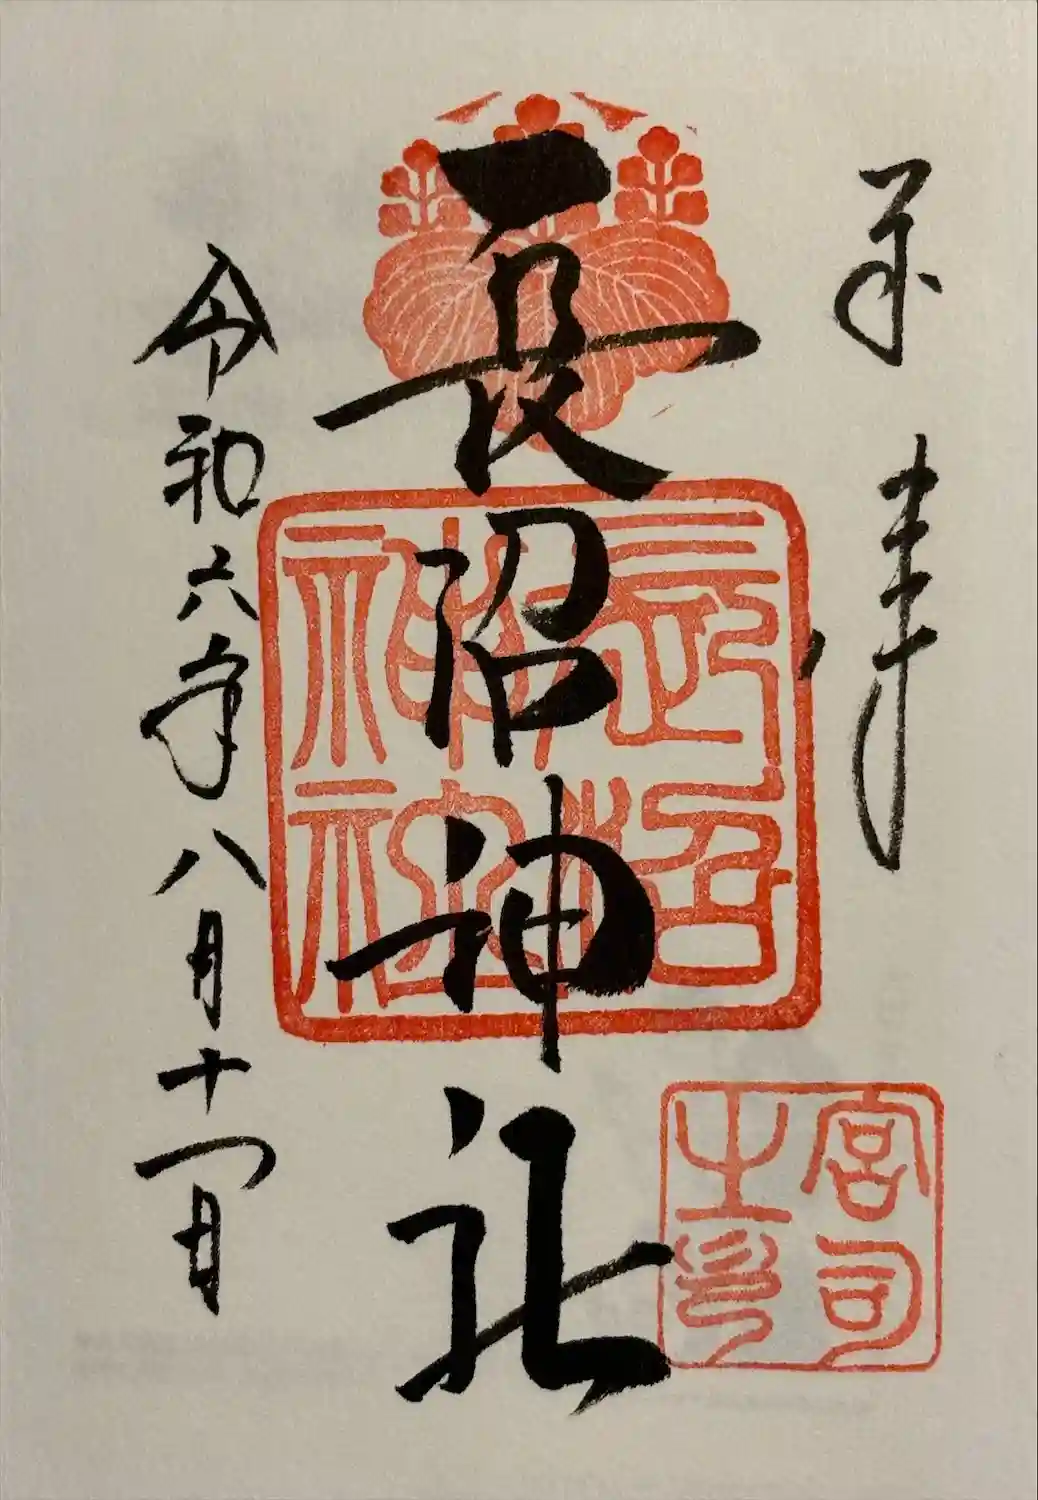 奉拝
長沼神社
令和六年八月十四日
長沼
神社
宮司
之印